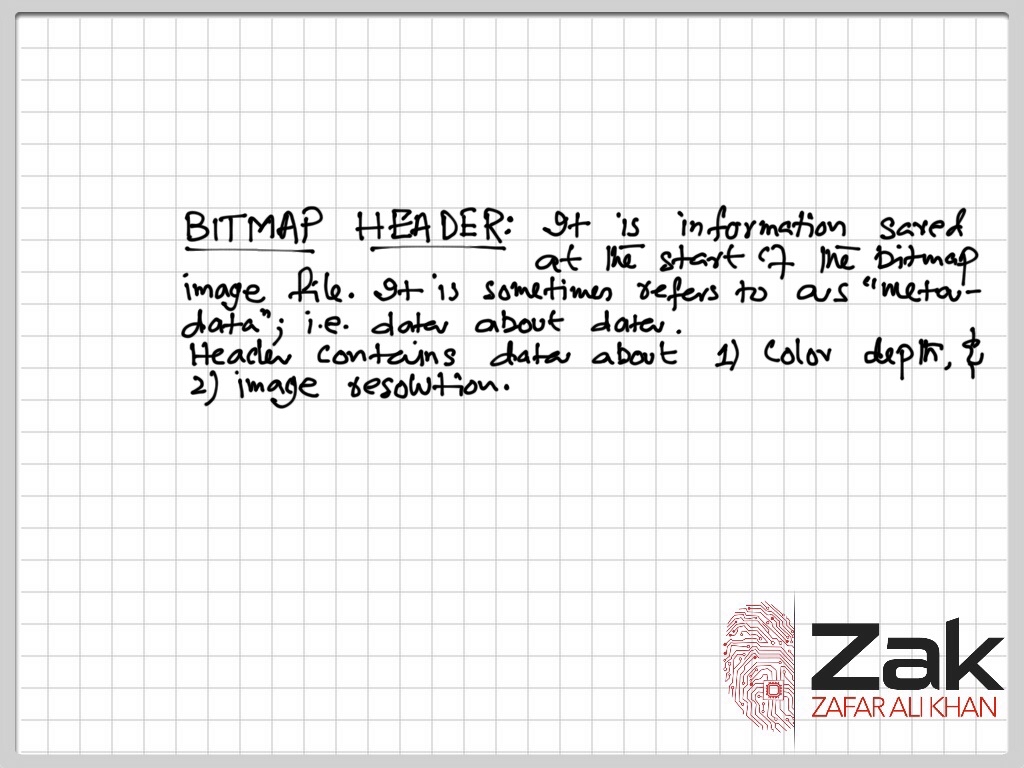 BITMAP HEADER: It is information saved
at the start of the bitmap
image file. It is sometimes refers to as "meta-
data"; i.e. data about data.
Header contains data about 1) Color depth, &
2) image resolution.
Zak
ZAFAR ALI KHAN